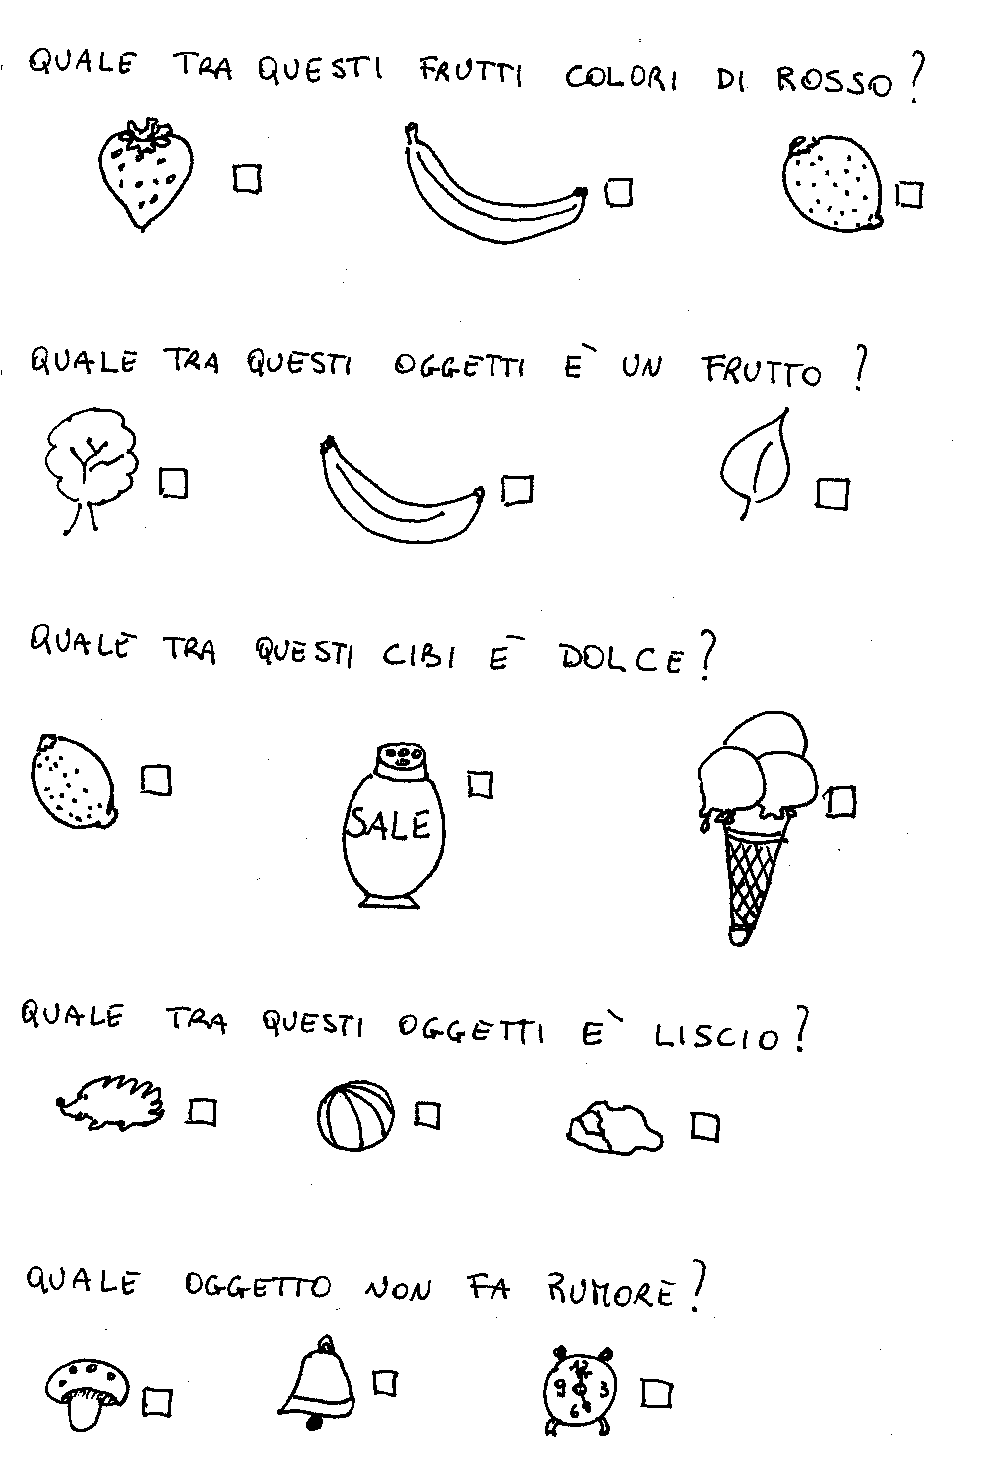 QUALE TRA QUESTI FRUTTI COLORI DI ROSSO?
QUALE TRA QUESTI OGGETTI È UN FRUTTO?
QUALE TRA QUESTI CIBI È DOLCE?
SALE
QUALE TRA QUESTI OGGETTI È LISCIO?
QUALE OGGETTO NON FA RUMORE?
12
9 3
6